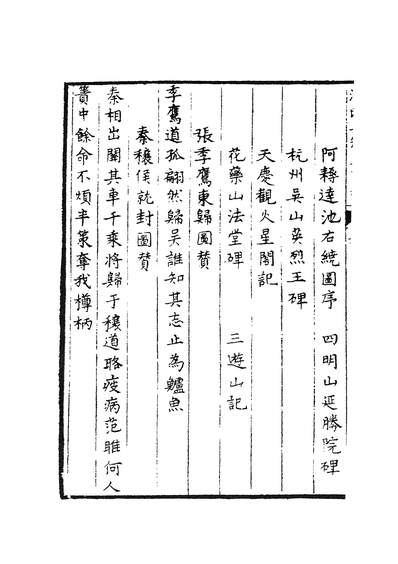 阿耨達池右繞圖序　四明山延勝院碑
杭州吳山英烈王碑
天慶觀火星閣記
花藥山法堂碑　三遊山記
張季鷹東歸圖贊
季鷹道孤翩然歸吳誰知其志止為鱸魚
秦穰侯就封圖贊
秦相出關其車千乘將歸于穰道路疲病范雎何人
蕢中餘命不煩半策奪我樽柄